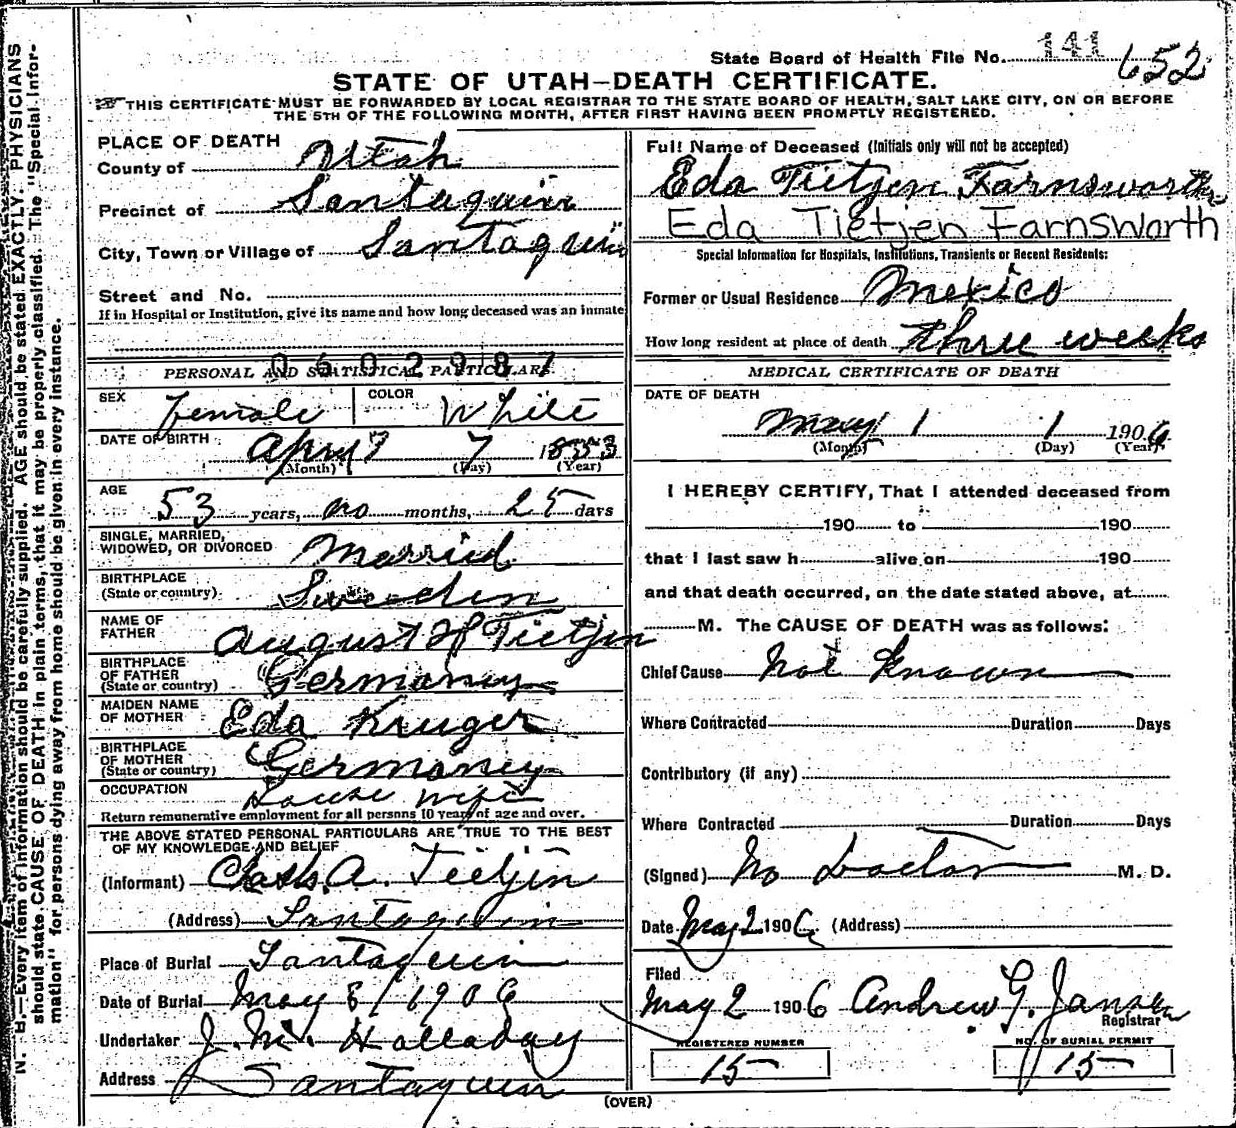 N. B.—Every item of information should be carefully supplied. AGE should be stated EXACTLY. PHYSICIANS
should state CAUSE OF DEATH in plain terms, that it may be properly classified. The "Special Infor-
mation" for persons dying away from home should be given in every instance.
State Board of Health File No. 141 652
STATE OF UTAH—DEATH CERTIFICATE.
THIS CERTIFICATE MUST BE FORWARDED BY LOCAL REGISTRAR TO THE STATE BOARD OF HEALTH, SALT LAKE CITY, ON OR BEFORE
THE 5TH OF THE FOLLOWING MONTH, AFTER FIRST HAVING BEEN PROMPTLY REGISTERED.
PLACE OF DEATH
County of Utah
Precinct of Santaquin
City, Town or Village of Santaquin
Street and No.
If in Hospital or Institution, give its name and how long deceased was an inmate
0602987
PERSONAL AND STATISTICAL PARTICULARS
SEX female COLOR White
DATE OF BIRTH April 7 1853
(Month) (Day) (Year)
AGE
53 years, no months, 25 days
SINGLE, MARRIED,
WIDOWED, OR DIVORCED Married
BIRTHPLACE
(State or country) Sweden
NAME OF
FATHER August H Tietjen
BIRTHPLACE
OF FATHER
(State or country) Germaney
MAIDEN NAME
OF MOTHER Eda Kruger
BIRTHPLACE
OF MOTHER
(State or country) Germaney
OCCUPATION House wife
Return remunerative employment for all persnns 10 years of age and over.
THE ABOVE STATED PERSONAL PARTICULARS ARE TRUE TO THE BEST
OF MY KNOWLEDGE AND BELIEF
(Informant) A. Tietjin
(Address) Santaquin
Place of Burial Santaquin
Date of Burial May 3/1906
Undertaker J. M. Holladay
Address Santaquin
Full Name of Deceased (Initials only will not be accepted)
Eda Tietjen Farnsworth
Eda Tietjen Farnsworth
Special Information for Hospitals, Institutions, Transients or Recent Residents:
Former or Usual Residence Mexico
How long resident at place of death three weeks
MEDICAL CERTIFICATE OF DEATH
DATE OF DEATH
May 1 1 1906
(Month) (Day) (Year)
I HEREBY CERTIFY, That I attended deceased from
190 to 190
that I last saw h alive on 190
and that death occurred, on the date stated above, at
M. The CAUSE OF DEATH was as follows:
Chief Cause Not Known
Where Contracted Duration Days
Contributory (if any)
Where Contracted Duration Days
(Signed) No Doctor M. D.
Date May 2 1906 (Address)
Filed
May 2 1906 Andrew G. Jansen
Registrar
REGISTERED NUMBER NO. OF BURIAL PERMIT
15 15
(OVER)